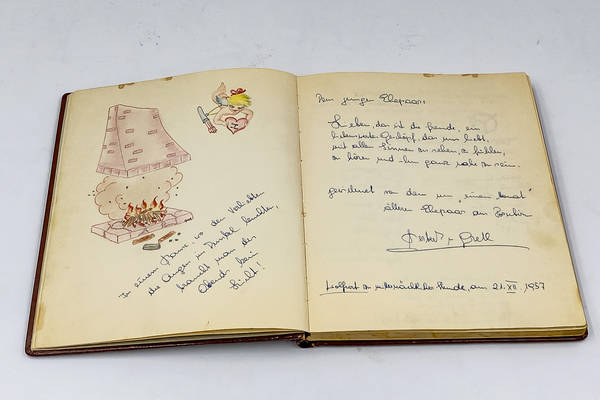 In einem Raume, wo den Verliebten
die Augen im Dunkel leuchten,
braucht man des
Abends kein
Licht!
Dem jungen Ehepaar:
Lieben, das ist die Freude, ein
liebenswertes Geschöpf, das uns liebt,
mit allen Sinnen zu sehen, zu fühlen,
zu hören und ihm ganz nahe zu sein.
gewidmet von dem um „einen Monat"
älteren Ehepaar am
Gretl
Stunde, am 21. XII. 1957